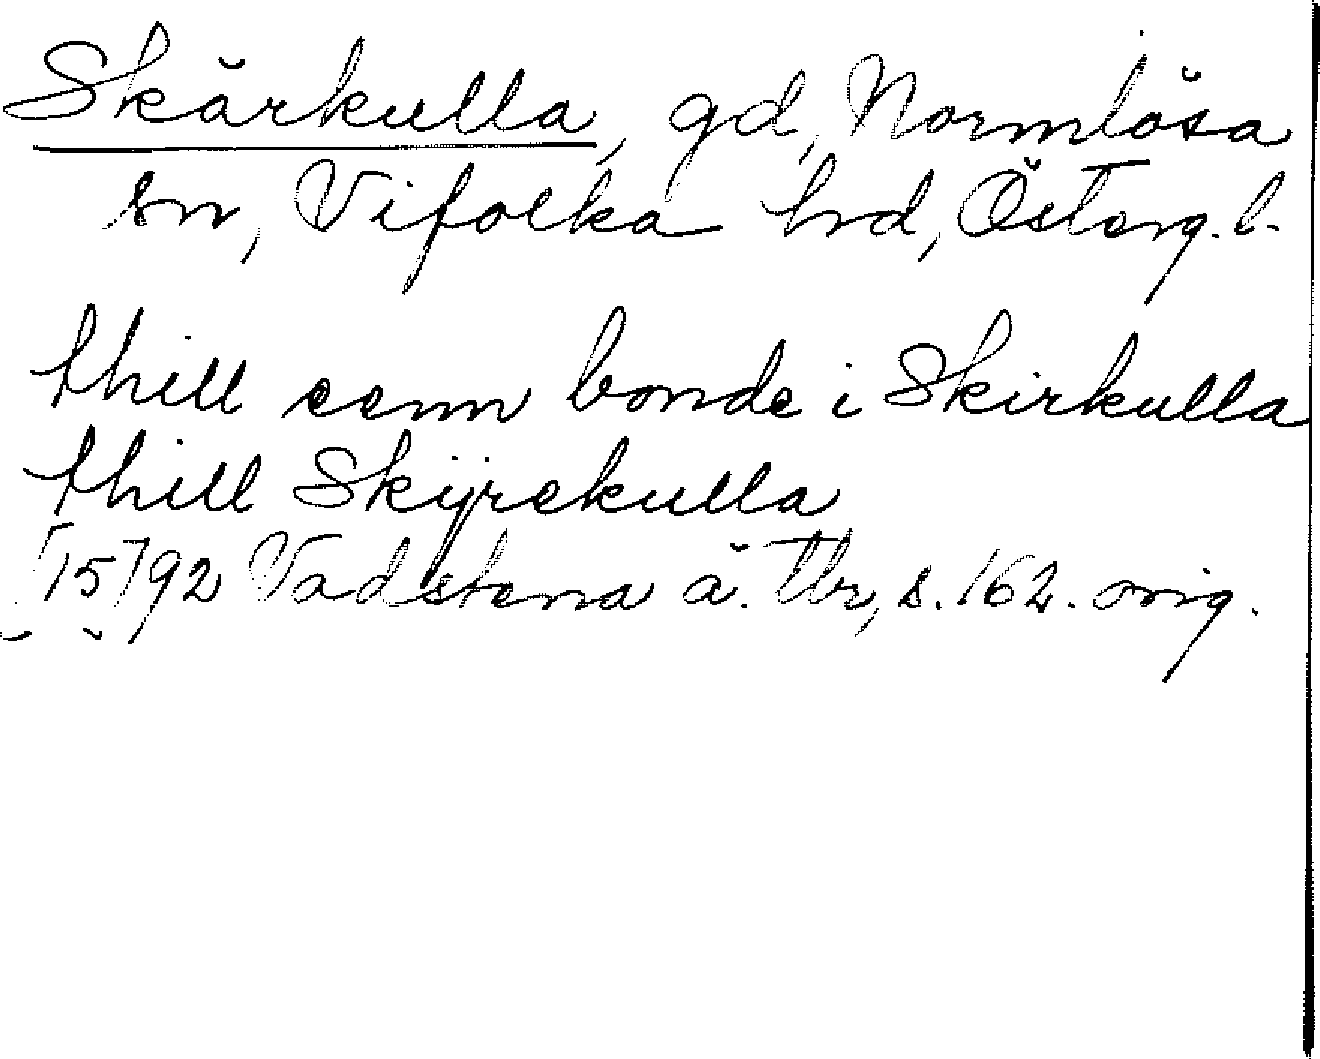 Skärkulla, gd, Normlösa
sn, Vifolka hrd, Österg. l.
thill eenn bonde i Skirkulla
thill Skÿrekulla
[15]92 Vadstena ä. Tbr, s. 162. orig.